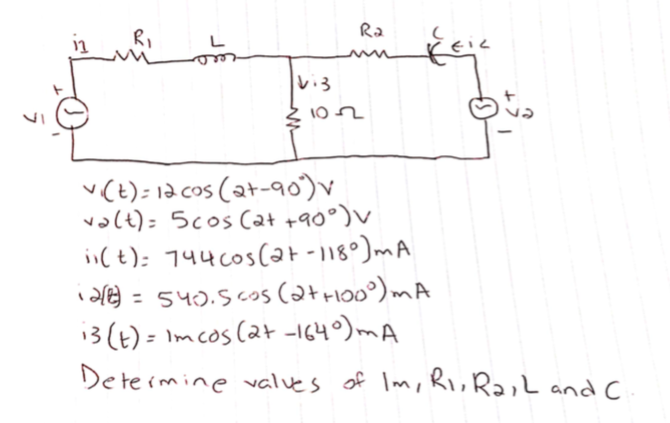 i1 R1 L R2 C ← i2
+ V1 -
↓ i3
10 Ω
+ V2 -
v1(t) = 12 cos (2t-90°) V
v2(t) = 5 cos (2t +90°) V
i1(t) = 744 cos(2t -118°) mA
i2(t) = 540.5 cos (2t+100°) mA
i3(t) = Im cos (2t -164°) mA
Determine values of Im, R1, R2, L and C.